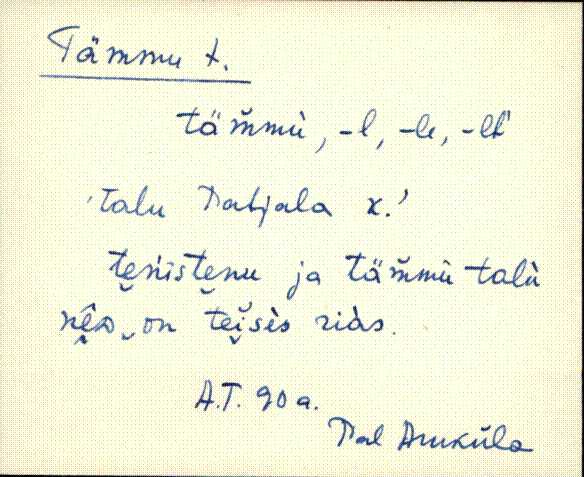 Tämmu t.
täm̆mù, -l, -le, -lt
'talu Patjala k.'
te̮ńiste̮nu ja täm̆mù talù
on te̮i̮sès riàs.
A.T. 90 a.
Pal Aruküla